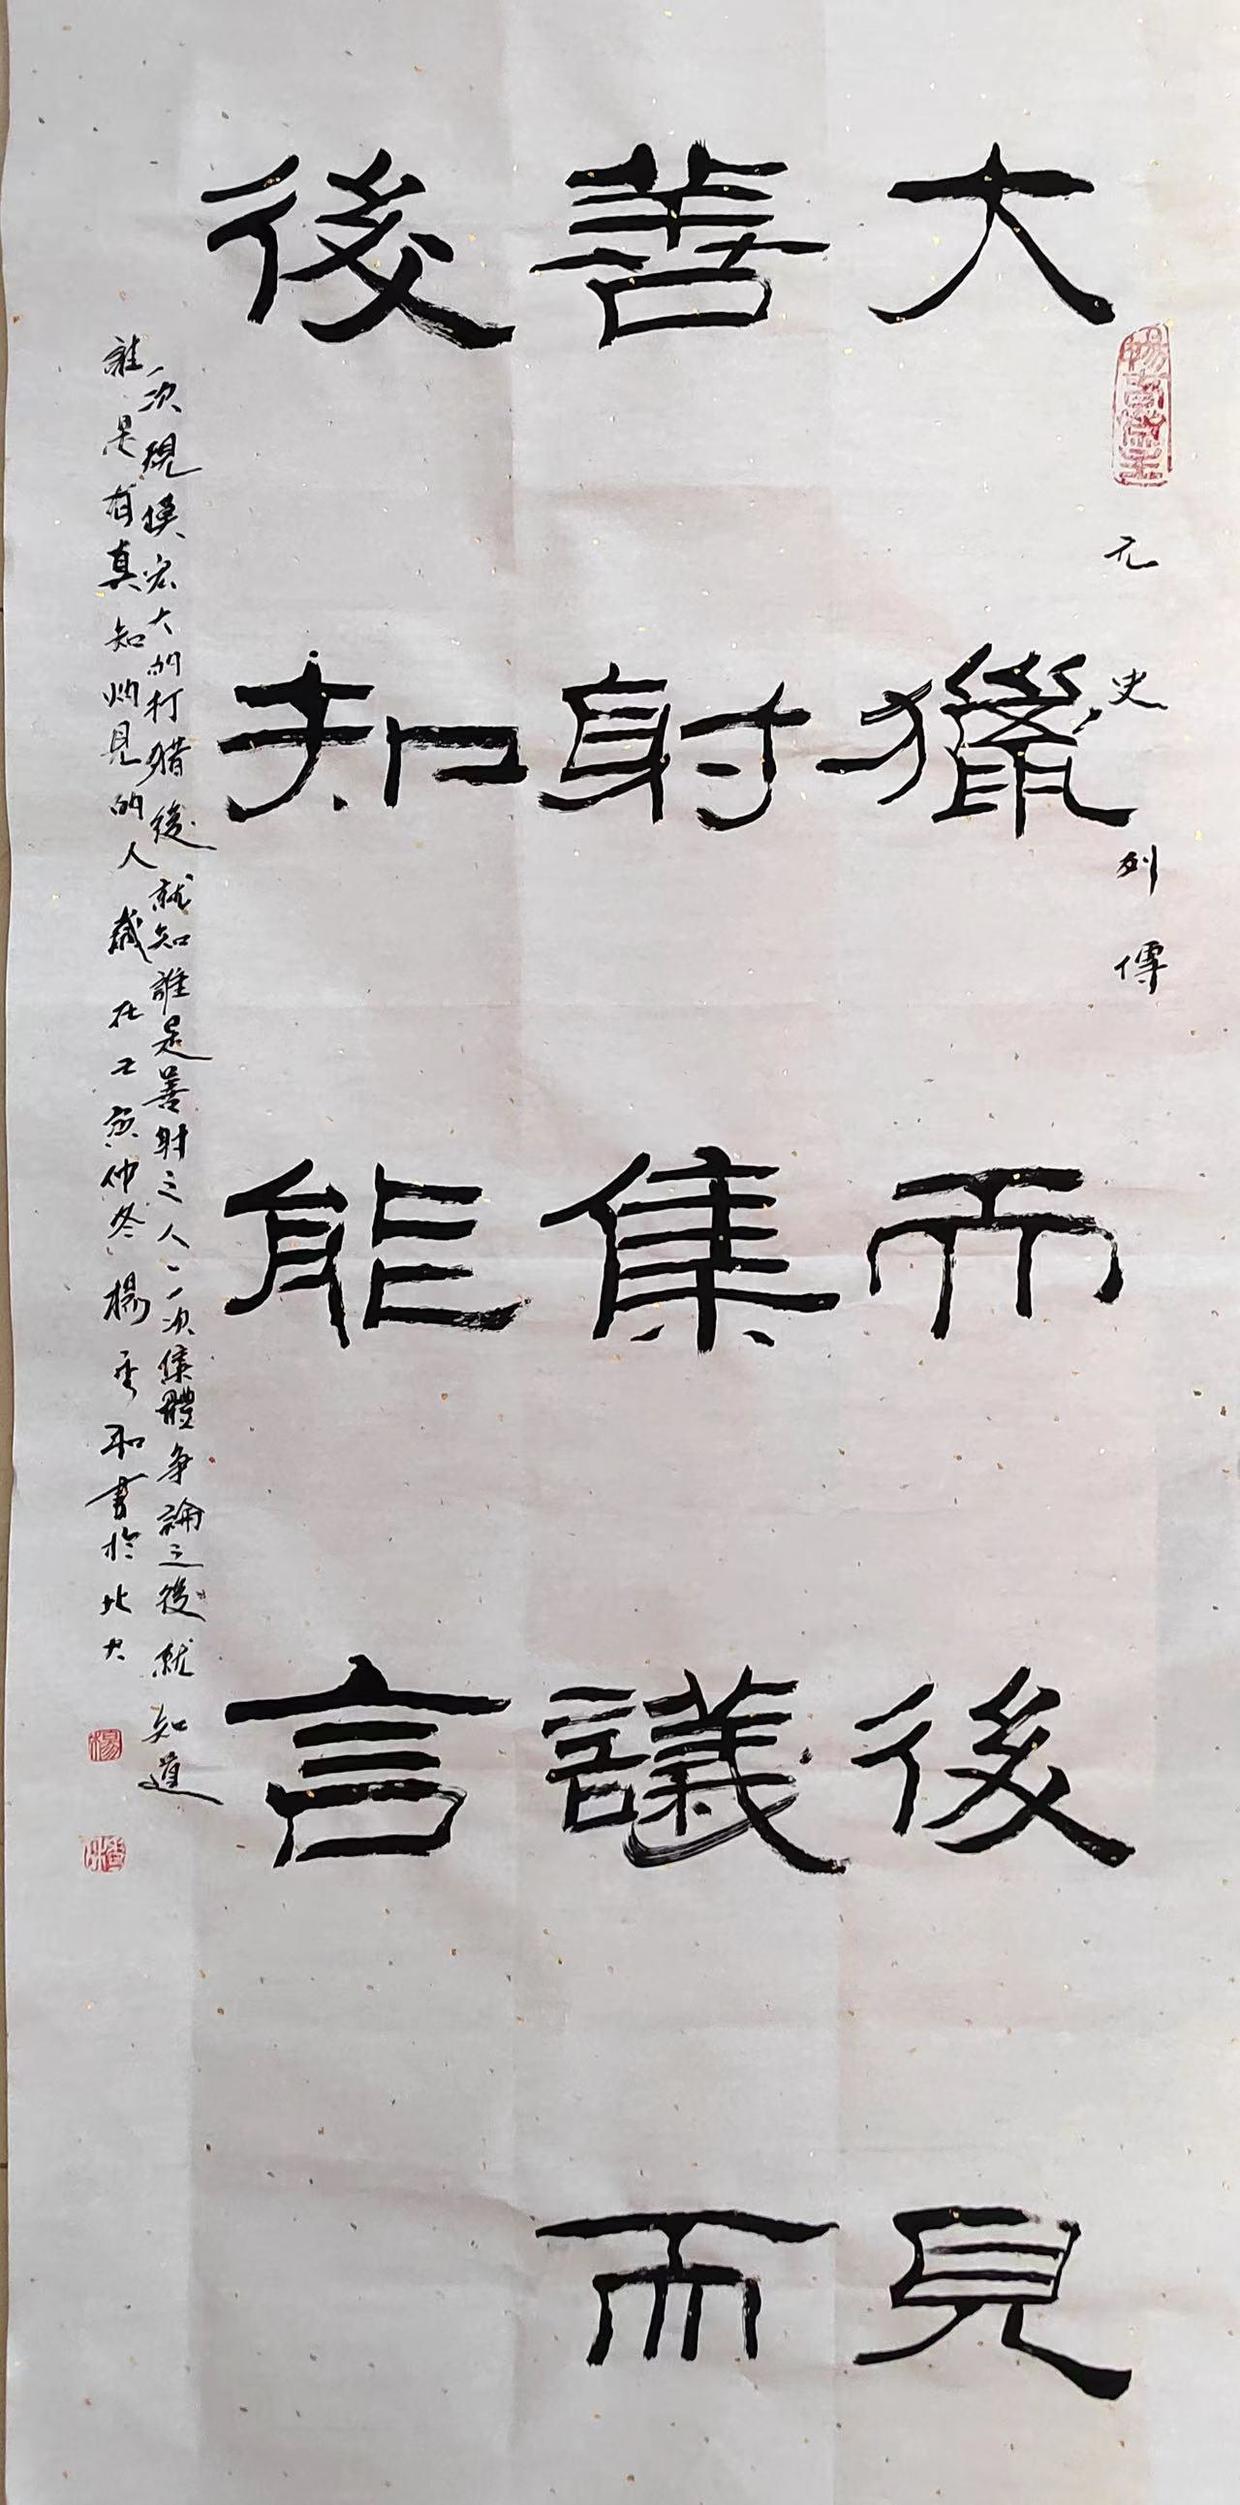 元史列傳
大獵而後見
善射集議而
後知能言
一次規模宏大的打猎後就知誰是善射之人一次集體争論之後就知道
誰是有真知灼見的人歲在仲冬楊書於北大
楊